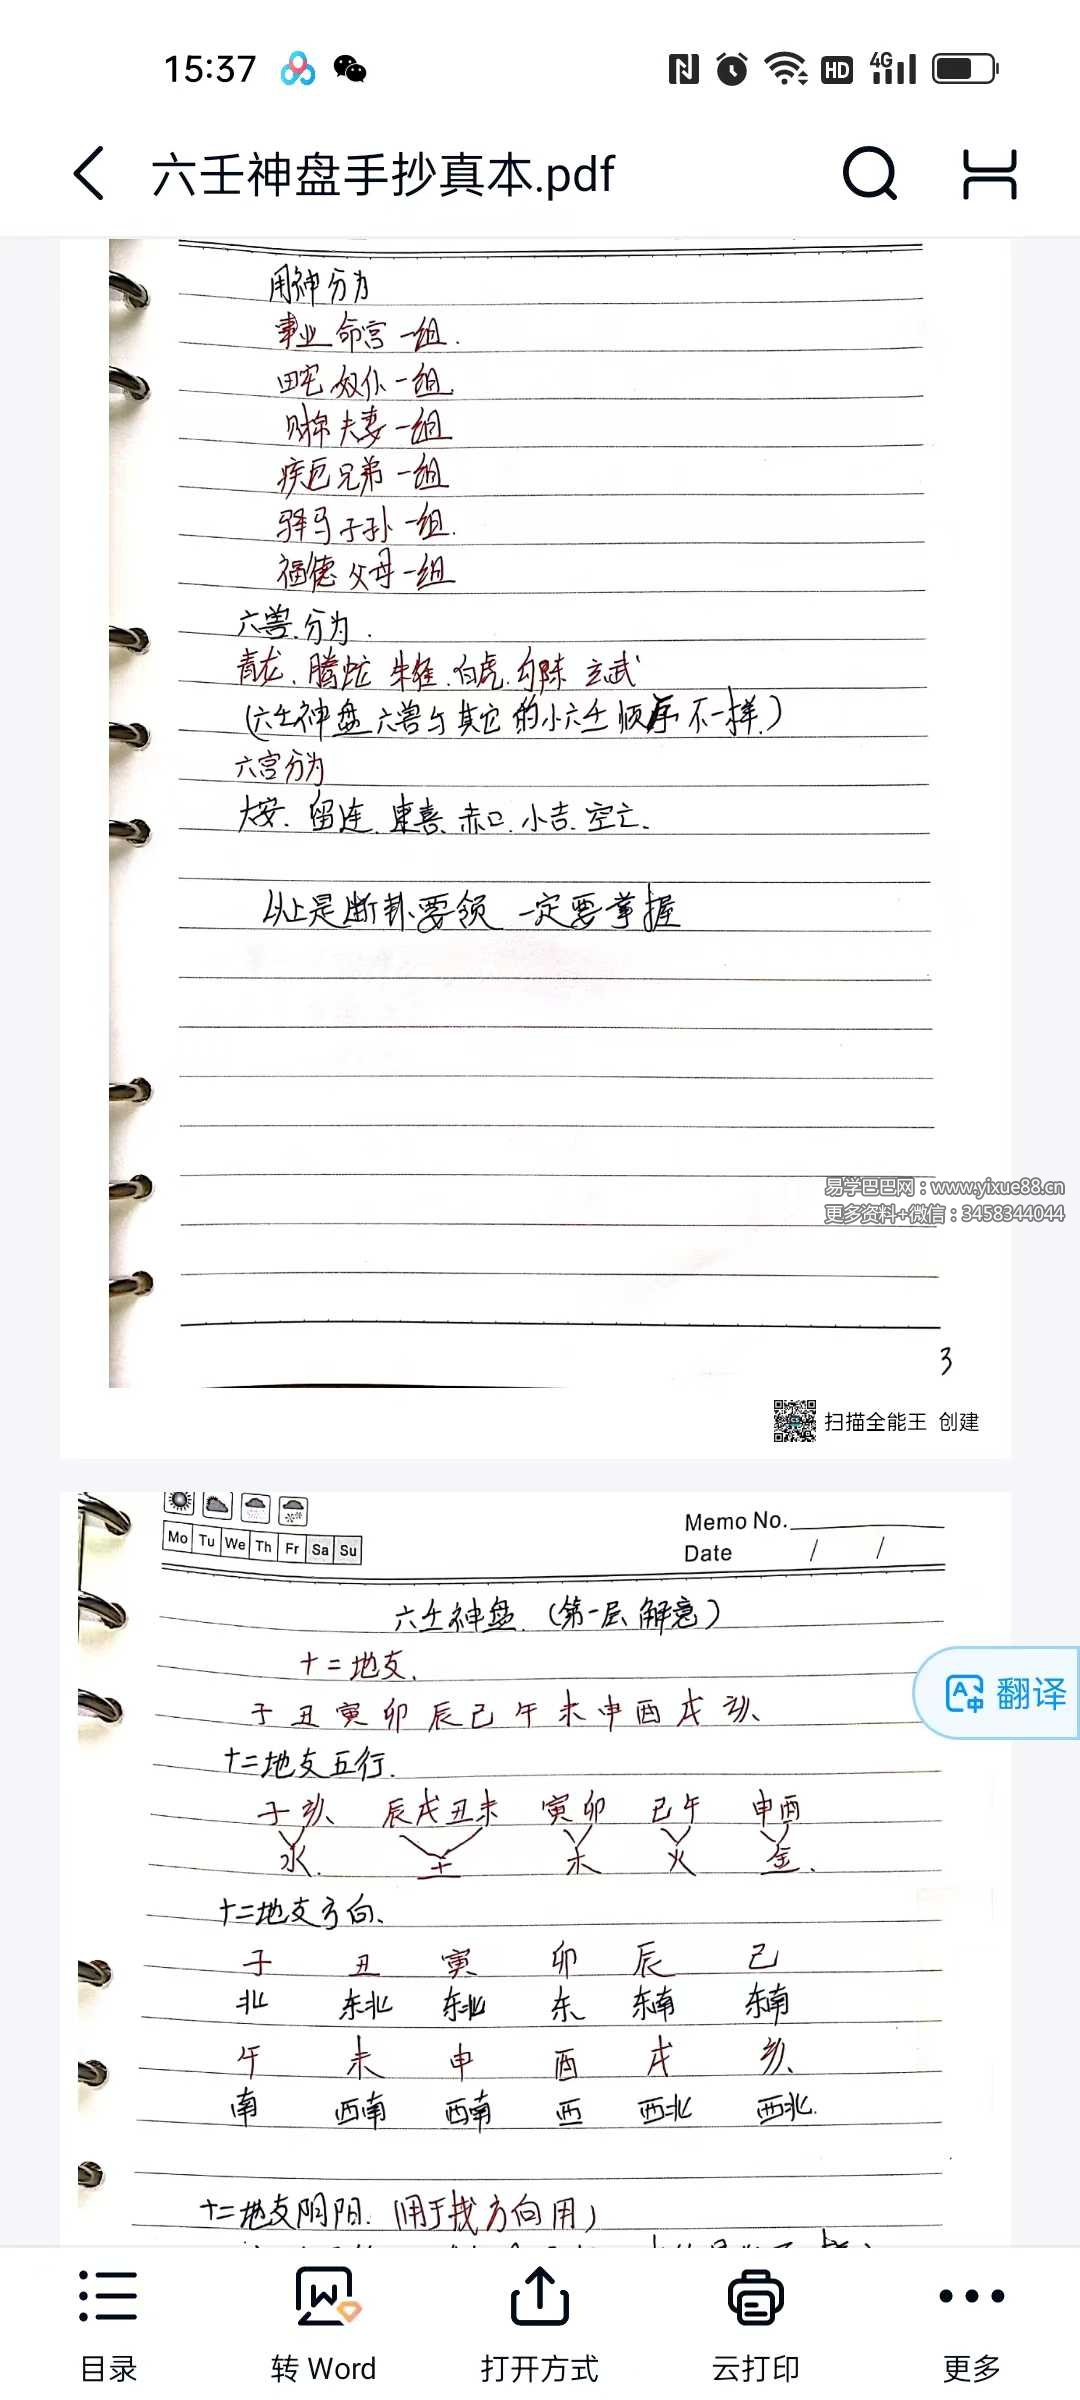 15:37
HD 4G
六壬神盘手抄真本.pdf
用神分为
事业 命宫 一组.
田宅 奴仆 一组.
财帛 夫妻 一组
疾厄 兄弟 一组
驿马 子孙 一组.
福德 父母 一组
六兽.分为.
青龙.腾蛇 朱雀.白虎.勾陈 玄武
(六壬神盘六兽与其它的小六壬顺序不一样.)
六宫分为
大安.留连.速喜.赤口.小吉.空亡.
以上是断卦要领 一定要掌握
易学巴巴网：www.yixue88.cn
更多资料+微信：3458344044
3
扫描全能王 创建
Mo Tu We Th Fr Sa Su
Memo No.
Date / /
六壬神盘.(第一层 解意)
十二地支.
子 丑 寅 卯 辰 巳 午 未 申 酉 戌 亥、
翻译
十二地支五行.
子亥、 辰戌丑未 寅卯 巳午 申酉
水. 土 木 火 金.
十二地支方向、
子 丑 寅 卯 辰 巳
北 东北 东北 东 东南 东南
午 未 申 酉 戌 亥、
南 西南 西南 西 西北 西北.
十二地支阴阳.(用于找方向用)
目录 转 Word 打开方式 云打印 更多